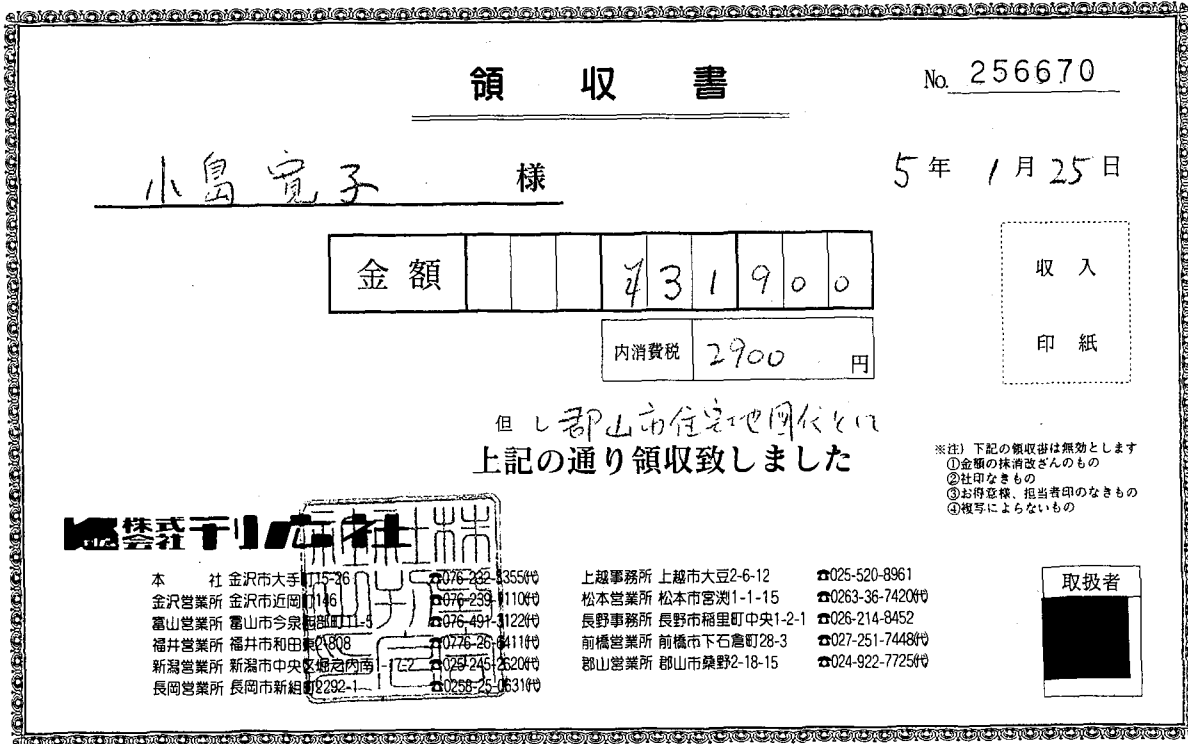 領収書
No. 256670
小島寛子 様
5年1月25日
金額 ¥31900
内消費税 2900円
収入
印紙
但し郡山市住宅地図代として
上記の通り領収致しました
※注)下記の領収書は無効とします
①金額の抹消改ざんのもの
②社印なきもの
③お得意様、担当者印のなきもの
④複写によらないもの
株式会社 刊広社
本 社 金沢市大手町15-26 ☎076-232-3355㈹
金沢営業所 金沢市近岡町146 ☎076-239-1110㈹
富山営業所 富山市今泉西部町11-5 ☎076-491-3122㈹
福井営業所 福井市和田東2-808 ☎0776-26-6411㈹
新潟営業所 新潟市中央区堀之内南1-17-2 ☎025-245-2620㈹
長岡営業所 長岡市新組町2292-1 ☎0258-25-0631㈹
上越事務所 上越市大豆2-6-12 ☎025-520-8961
松本営業所 松本市宮渕1-1-15 ☎0263-36-7420㈹
長野事務所 長野市稲里町中央1-2-1 ☎026-214-8452
前橋営業所 前橋市下石倉町28-3 ☎027-251-7448㈹
郡山営業所 郡山市桑野2-18-15 ☎024-922-7725㈹
取扱者